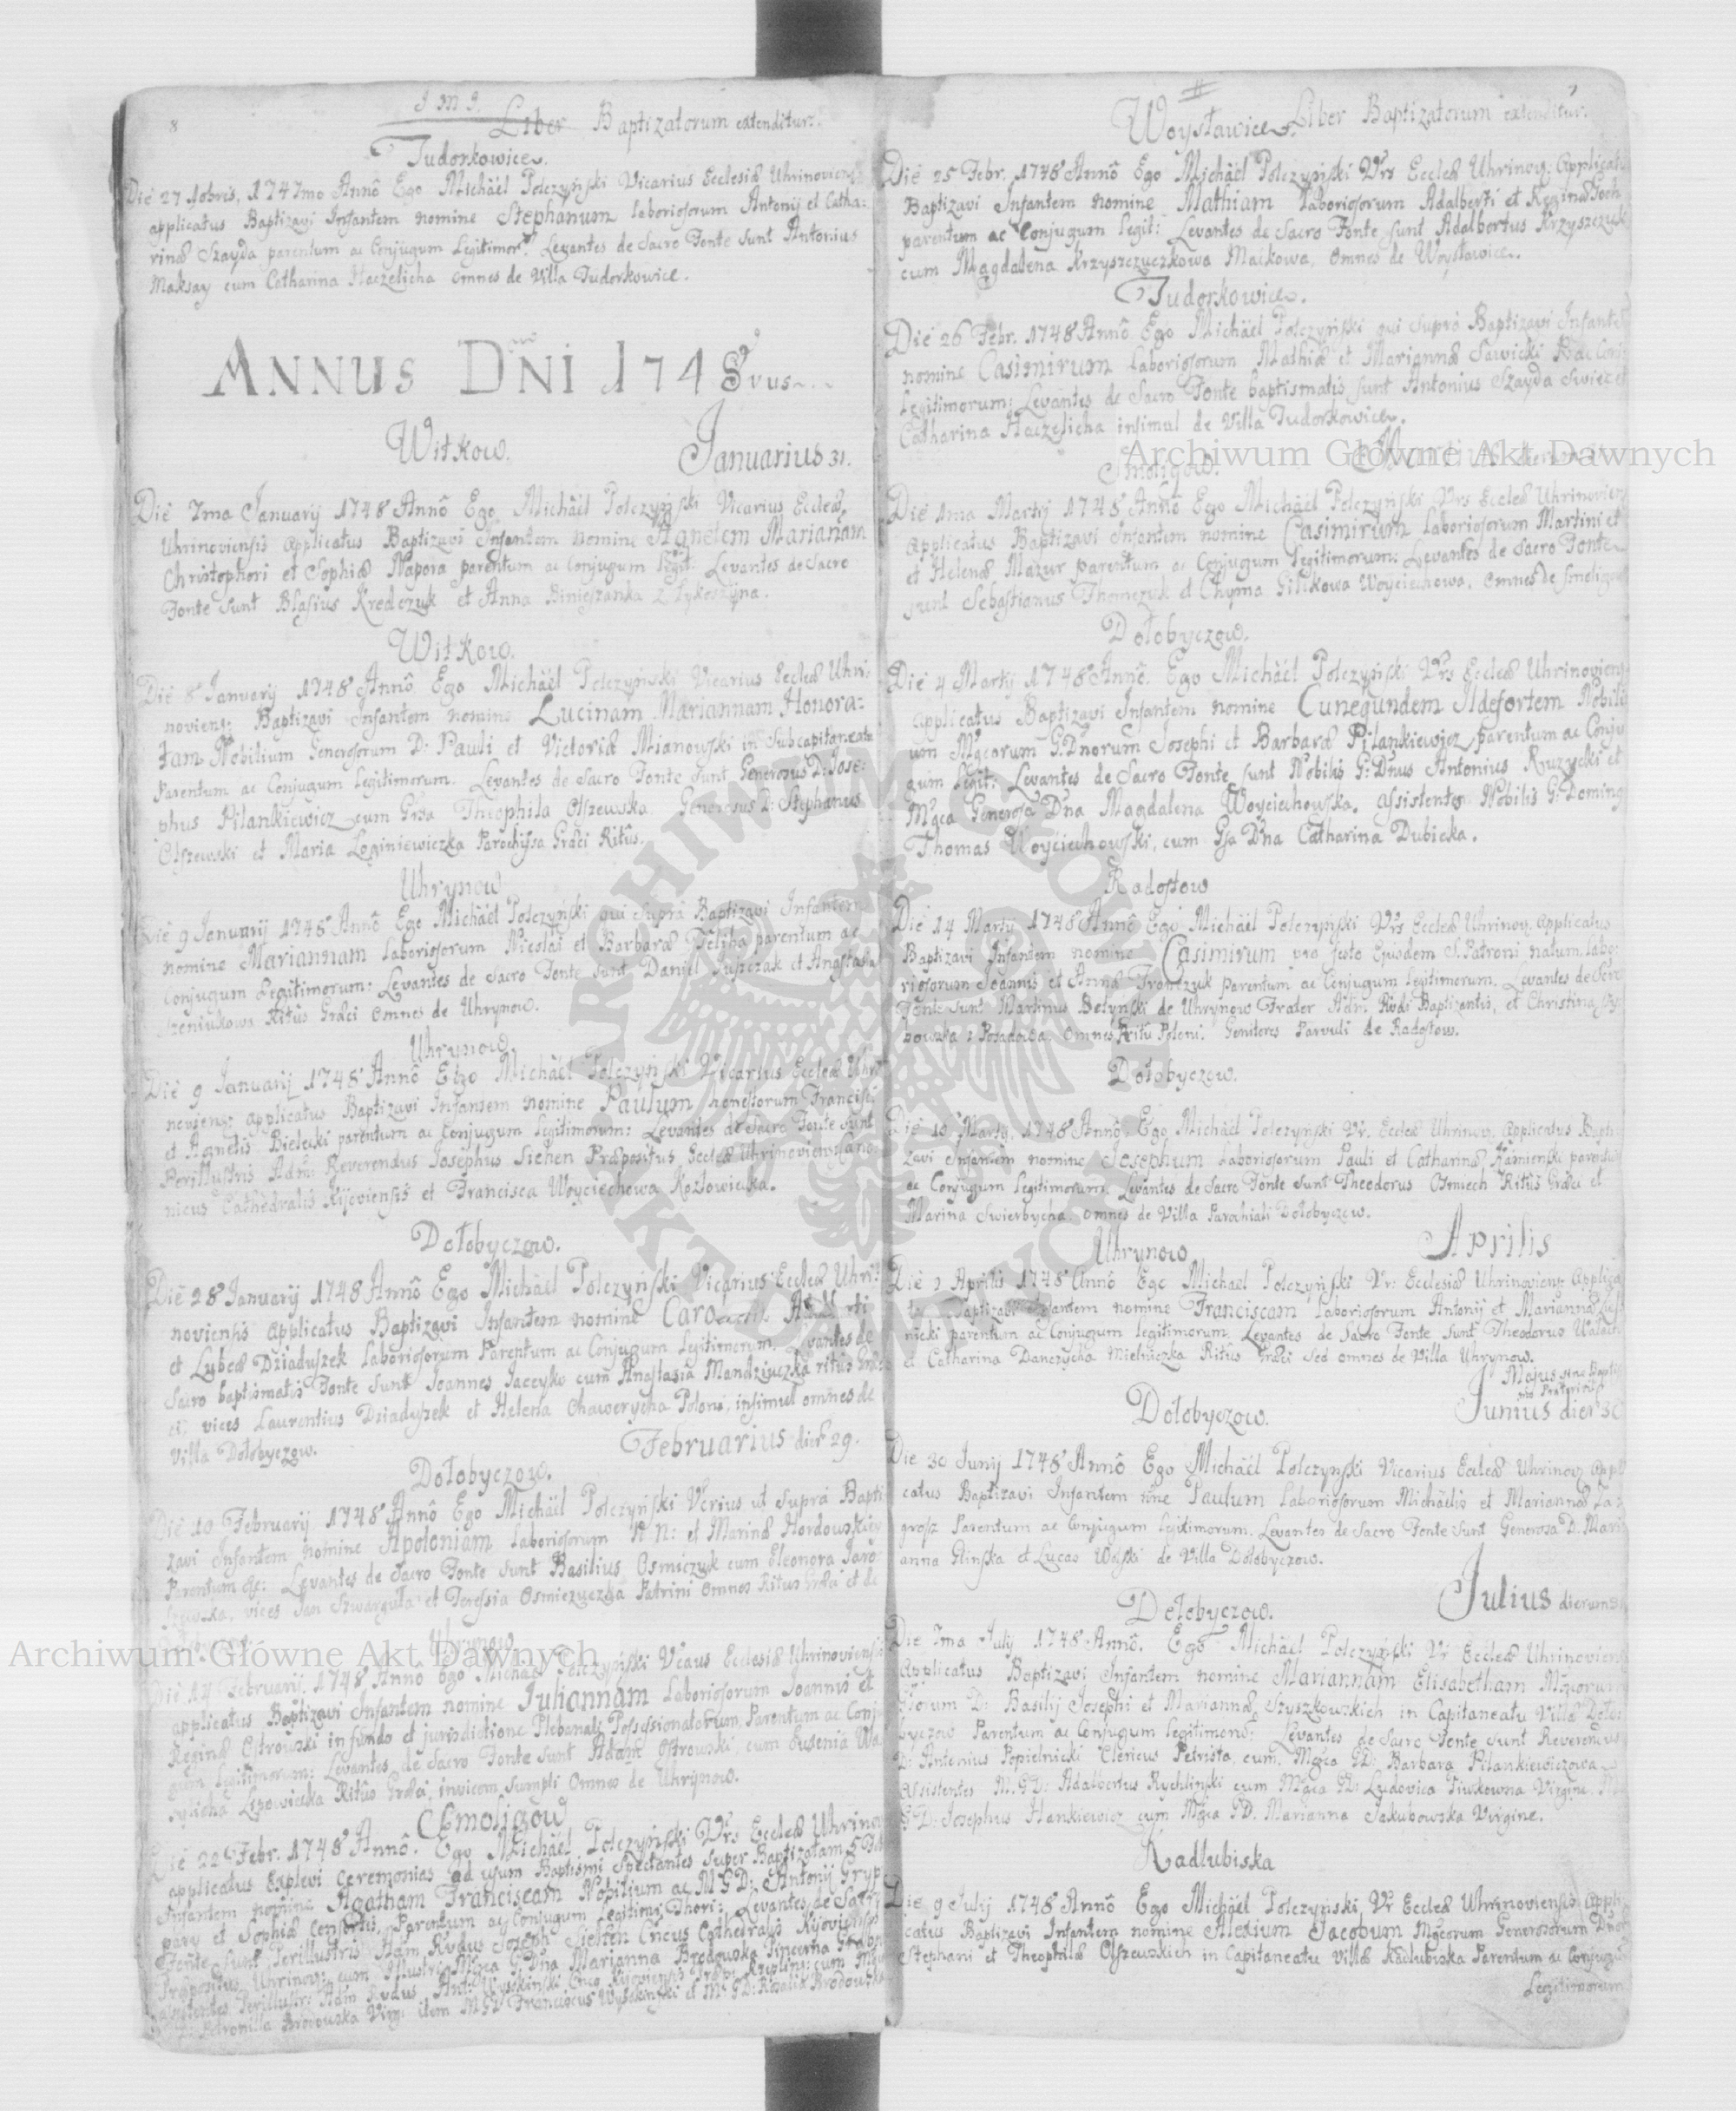 J M J.
8
Liber Baptizatorum extenditur.
Tudorkowice.
Die 27 Xobris, 1747mo Annô Ego Michäel Polczyński Vicarius Ecclesiæ Uhrinoviens:
applicatus Baptizavi Infantem nomine Stephanum laboriosorum Antonij et Catha:
rinæ Szayda parentum ac Conjugum Legitimor: Levantes de Sacro Fonte sunt Antonius
Maksay cum Catharina Haczelicha omnes de Villa Tudorkowice.
ANNUS DNI 1748vus
Witkow.
Januarius 31.
Die 7ma Januarij 1748 Annô Ego Michäel Polczyński Vicarius Eccleæ
Uhrinoviensis applicatus Baptizavi Infantem nomine Agnetem Mariannam
Christophori et Sophiæ Napora parentum ac Conjugum Legit: Levantes de Sacro
Fonte sunt Blasius Kredczuk et Anna
Witkow.
Die 8 Januarij 1748 Annô Ego Michäel Polczyński Vicarius Eccleæ Uhri:
noviens: Baptizavi Infantem nomine Lucinam Mariannam Honora:
tam Nobilium Generosorum D: Pauli et Victoriæ Mianowski in Subcapitaneatu
Parentum ac Conjugum Legitimorum. Levantes de Sacro Fonte sunt Generosus D: Jose:
phus Pilankiewicz cum Grsa Theophila Olszewska. Generosus D: Stephanus
Olszewski et Maria Loginiewiczka Parochissa Græci Ritûs.
Uhrynow
Die 9 Januarij 1748 Annô Ego Michäel Polczyński qui supra Baptizavi Infantem
nomine Mariannam Laboriosorum Nicolai et Barbaræ Feliha parentum ac
Conjugum Legitimorum: Levantes de Sacro Fonte sunt Daniel Puszczak et Anastasia
Ritûs Græci omnes de Uhrynow.
Uhrynow.
Die 9 Januarij 1748 Annô Ego Michäel Polczyński Vicarius Eccleæ Uhri
noviens: applicatus Baptizavi Infantem nomine Paulum honestorum Francisci
et Agnetis Bielecki parentum ac Conjugum Legitimorum: Levantes de Sacro Fonte sunt
Perillustris Adm: Reverendus Josephus Siehen Præpositus Eccleæ Uhrinoviens: Cano:
nicus Cathedralis Kijoviensis et Francisca Woyciechowa Kozłowiczka.
Dołobyczow.
Die 28 Januarij 1748 Annô Ego Michäel Polczyński Vicarius Eccleæ Uhri:
noviensis applicatus Baptizavi Infantem nomine
et Lybeæ Dziaduszek Laboriosorum Parentum ac Conjugum Legitimorum. Levantes de
Sacro baptismatis Fonte sunt Joannes Jaceyko cum Anastasia Mandziuczka ritus Græci
vices Laurentius Dziaduszek et Helena Chawerycha Poloni, insimul omnes de
Villa Dołobyczow.
Februarius dier 29.
Dołobyczow.
Die 10 Februarij 1748 Annô Ego Michäel Polczyński Vcrius ut supra Bapti
zavi Infantem nomine Apoloniam laboriosorum N: N: et Marinæ Hordowskiey
Parentum &c: Levantes de Sacro Fonte sunt Basilius Osmiczuk cum Eleonora Jaro
szewska, vices Jan Szwarguła et Teressia Osmiczuczka Patrini omnes Ritus Græci et de
Uhrynow.
Die 14 Februarij 1748 Anno Ego Michäel Polczyński Vcaus Ecclesiæ Uhrinoviensis
applicatus Baptizavi Infantem nomine Juliannam Laboriosorum Joannis et
Reginæ Ostrowski in fundo et jurisdictione Plebanali Possessionatorum, Parentum ac Conju
gum Legitimorum: Levantes de Sacro Fonte sunt Adam Ostrowski, cum Eusenia Wa
sylicha Lipowiecka Ritûs Græci, invicem sumpti omnes de Uhrynow.
Smoligow
Die 22 Febr. 1748 Annô. Ego Michäel Polczyński Vrs Eccleæ Uhrinov
applicatus Explevi Ceremonias ad usum Baptismi spectantes super Baptizatam
Infantem nomine Agatham Franciscam Nobilium ac M G D: Antonij Gryp
pary et Sophiæ Consortis, Parentum ac Conjugum Legitimi Thori: Levantes de Sacro
Fonte sunt Perillustris Adm Rvdus Joseph Siehen Cncus Cathedralis Kijoviensis
Præpositus Uhrinov: cum Illustri Mgca G Dna Marianna Brodowska Pincerna Grabov
assistentes Perillustr: Adm Rvdus Ant: Wysokiński
Petronilla Brodowska Virg: item M G D Franciscus Wysokiński et M G D: Rosalia Brodowska
9
Liber Baptizatorum extenditur.
Woysławice.
Die 25 Febr. 1748 Annô Ego Michäel Polczyński Vrs Eccleæ Uhrinov: applicatus
Baptizavi Infantem nomine Mathiam Laboriosorum Adalberti et Reginæ
parentum ac Conjugum Legit: Levantes de Sacro Fonte sunt Adalbertus Krzyszczuk
cum Magdalena Krzyszczuczkowa Maikowa, omnes de Woysławice.
Tudorkowice.
Die 26 Febr. 1748 Annô. Ego Michäel Polczyński qui supra Baptizavi Infantem
nomine Casimirum Laboriosorum Mathiæ et Mariannæ Sawicki P. ac Coni:
Legitimorum: Levantes de Sacro Fonte baptismatis sunt Antonius Szayda
Catharina Haczelicha insimul de Villa Tudorkowice.
Smoligow.
Martius
Die 1ma Martij 1748 Annô Ego Michäel Polczyński Vrs Eccleæ Uhrinovien
applicatus Baptizavi Infantem nomine Casimirum Laboriosorum Martini et
et Helenæ Mazur parentum ac Conjugum Legitimorum: Levantes de Sacro Fonte
sunt Sebastianus Thomczuk et Chyma Gilikowa Woyciechowa, omnes de Smoligow
Dołobyczow.
Die 4 Martij 1748 Annô. Ego Michäel Polczyński Vrs Eccleæ Uhrinoviens
applicatus Baptizavi Infantem nomine Cunegundem Ildefortem Nobili
um Mgcorum G: Dnorum Josephi et Barbaræ Pilankiewicz parentum ac Conju
gum Legit: Levantes de Sacro Fonte sunt Nobilis G: Dnus Antonius Ruzycki et
Mgca Generosa Dna Magdalena Woyciechowska. assistentes Nobilis G: Doming
Thomas Woyciechowski, cum Gsa Dna Catharina Dubicka.
Radostow
Die 14 Martij 1748 Annô Ego Michäel Polczyński Vrs Eccleæ Uhrinov. applicatus
Baptizavi Infantem nomine Casimirum pro festo Ejusdem S. Patroni natum, Labo:
riosorum Joannis et Annæ Franczuk parentum ac Conjugum Legitimorum. Levantes de Sacro
Fonte sunt Martinus Betynski de Uhrynow Frater Adm Rvdi Baptizantis, et Christina
bowska z Posadowa. omnes Ritu Poloni. Genitores Parvuli de Radostow.
Dołobyczow.
Die 19 Martij. 1748 Annô. Ego Michäel Polczyński Vr. Eccleæ Uhrinov. applicatus Bapti
zavi Infantem nomine Josephum Laboriosorum Pauli et Catharinæ Kamienski parentum
ac Conjugum Legitimorum. Levantes de Sacro Fonte sunt Theodorus Osmiech Ritûs Græci et
Marina Swierbycha. omnes de Villa Parochiali Dołobyczow.
Uhrynow
Aprilis
Die 2 Aprilis 1748 Annô Ego Michael Polczyński Vr: Ecclesiæ Uhrinoviens: applica
tus Baptizavi Infantem nomine Franciscam Laboriosorum Antonij et Mariannæ
nicki parentum ac Conjugum Legitimorum. Levantes de Sacro Fonte sunt Theodorus
et Catharina Danczycha Mielniczka Ritûs Græci sed omnes de Villa Uhrynow.
Majus sine Baptis
Dołobyczow.
Junius dier 30
Die 30 Junij 1748 Annô Ego Michäel Polczyński Vicarius Eccleæ Uhrinov appli
catus Baptizavi Infantem nne Paulum Laboriosorum Michäelis et Mariannæ Za:
grosz Parentum ac Conjugum Legitimorum. Levantes de Sacro Fonte sunt Generosa D. Mari
anna Glinska et Lucas Wolski de Villa Dołobyczow.
Dołobyczow.
Julius dierum 31
Die 7ma July 1748 Annô. Ego Michäel Polczyński Vr Eccleæ Uhrinoviens
Applicatus Baptizavi Infantem nomine Mariannam Elisabetham Mgcorum
G'orum D: Basilij Josephi et Mariannæ Szyszkowskich in Capitaneatu Villæ Doło
byczow Parentum ac Conjugum Legitimor: Levantes de Sacro Fonte sunt Reverendus
D: Antonius Popielnicki Clericus Petrista, cum Mgca GD: Barbara Pilankiewiczowa
Assistentes M. GD: Adalbertus Rychlinski cum Mgca GD Ludovica Tiuskowna Virgine. M
GD: Josephus Hankiewicz cum Mgca GD. Marianna Jakubowska Virgine.
Radlubiska
Die 9 Julij 1748 Annô Ego Michäel Polczynski Vr Eccleæ Uhrinoviensis appli
catus Baptizavi Infantem nomine Alexium Jacobum Mgcorum Generosorum Dnor
Stephani et Theophilæ Olszewskich in Capitaneatu Villæ Radlubiska Parentum ac Conjugu
Legitimorum
Archiwum Główne Akt Dawnych
Archiwum Główne Akt Dawnych
ARCHIWUM GŁÓWNE AKT DAWNYCH